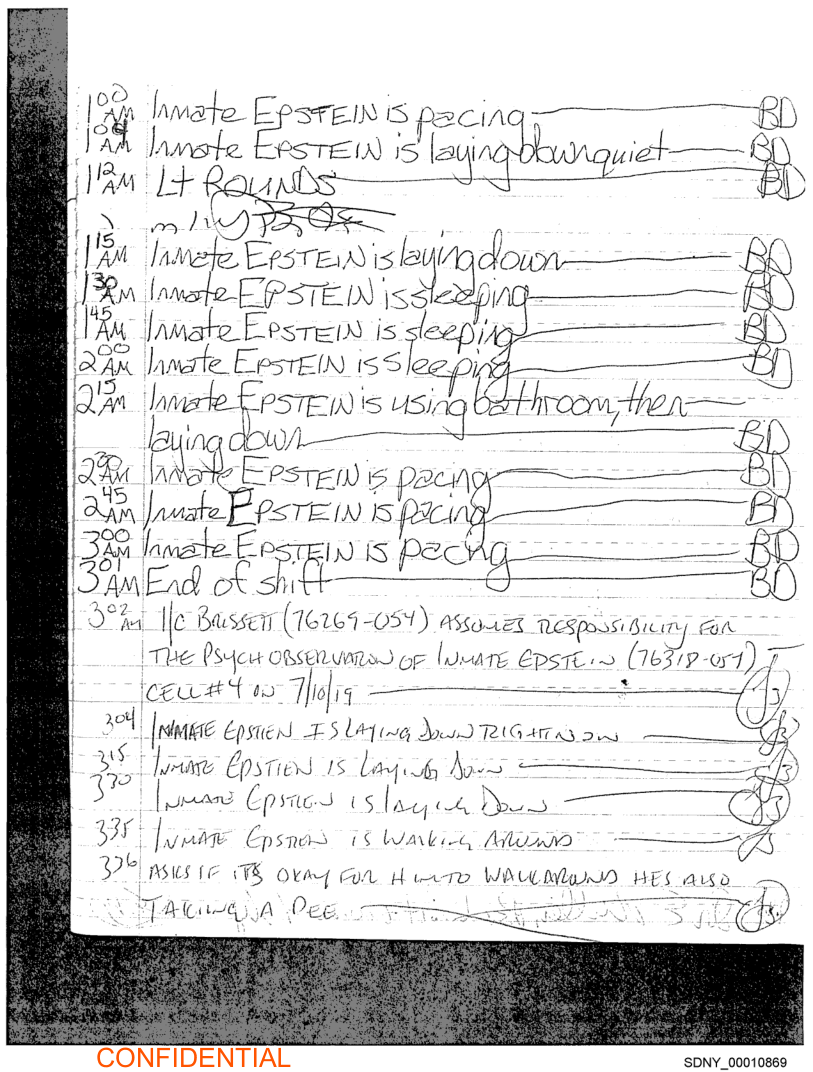 1 00 AM Inmate EPSTEIN is pacing BD
1 04 AM Inmate EPSTEIN is laying down quiet BD
1 12 AM Lt ROUNDS BD
1 15 AM Inmate EPSTEIN is laying down BD
1 30 AM Inmate EPSTEIN is sleeping BD
1 45 AM Inmate EPSTEIN is sleeping BD
2 00 AM Inmate EPSTEIN is sleeping BD
2 15 AM Inmate EPSTEIN is using bathroom, then
laying down BD
2 30 AM Inmate EPSTEIN is pacing BD
2 45 AM Inmate EPSTEIN is pacing BD
3 00 AM Inmate EPSTEIN is pacing BD
3 01 AM End of shift BD
3 02 AM I/C BRISSETT (76269-054) ASSUMES RESPONSIBILITY FOR
THE PSYCH OBSERVATION OF INMATE EPSTEIN (76318-054)
CELL #4 ON 7/10/19
304 INMATE EPSTIEN IS LAYING DOWN RIGHT NOW
315 INMATE EPSTIEN IS LAYING DOWN
330 INMATE EPSTIEN IS LAYING DOWN
335 INMATE EPSTIEN IS WALKING AROUND
336 ASKS IF ITS OKAY FOR HIM TO WALK AROUND HES ALSO
TAKING A PEE
CONFIDENTIAL
SDNY_00010869